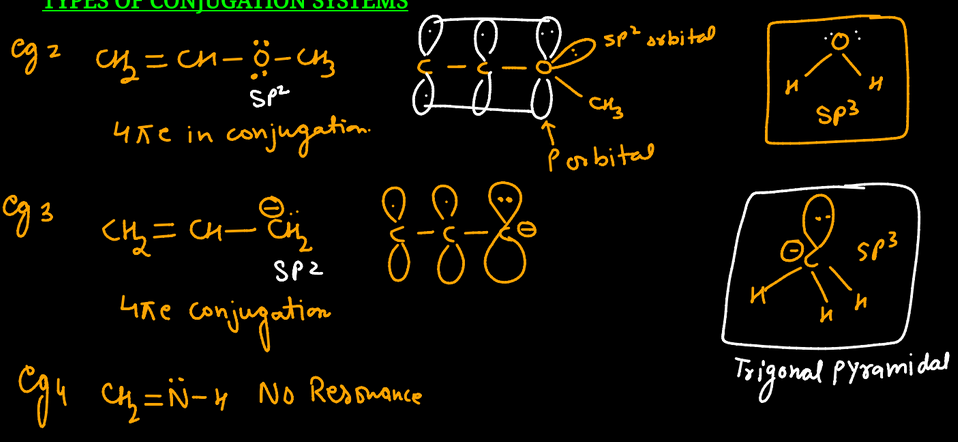 TYPES OF CONJUGATION SYSTEMS
Eg 2 CH2 = CH - Ö - CH3
SP2
4πe in conjugation.
C - C - O
SP2 orbital
CH3
P orbital
O
H H
SP3
Eg 3 CH2 = CH - CH2 ⊖
SP2
4πe conjugation
C - C - C ⊖
⊖ C SP3
H H H
Trigonal Pyramidal
Eg 4 CH2 = N̈ - H No Resonance